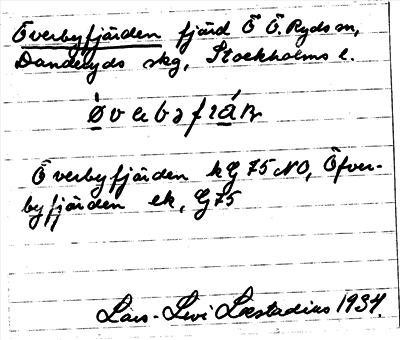 Överbyfjärden fjärd Ö Ö. Ryds sn,
Danderyds skg, Stockholms l.
Överbyfjärden kG 75 NO, Öfver-
byfjärden ek, G 75
Lars-Levi Læstadius 1934.